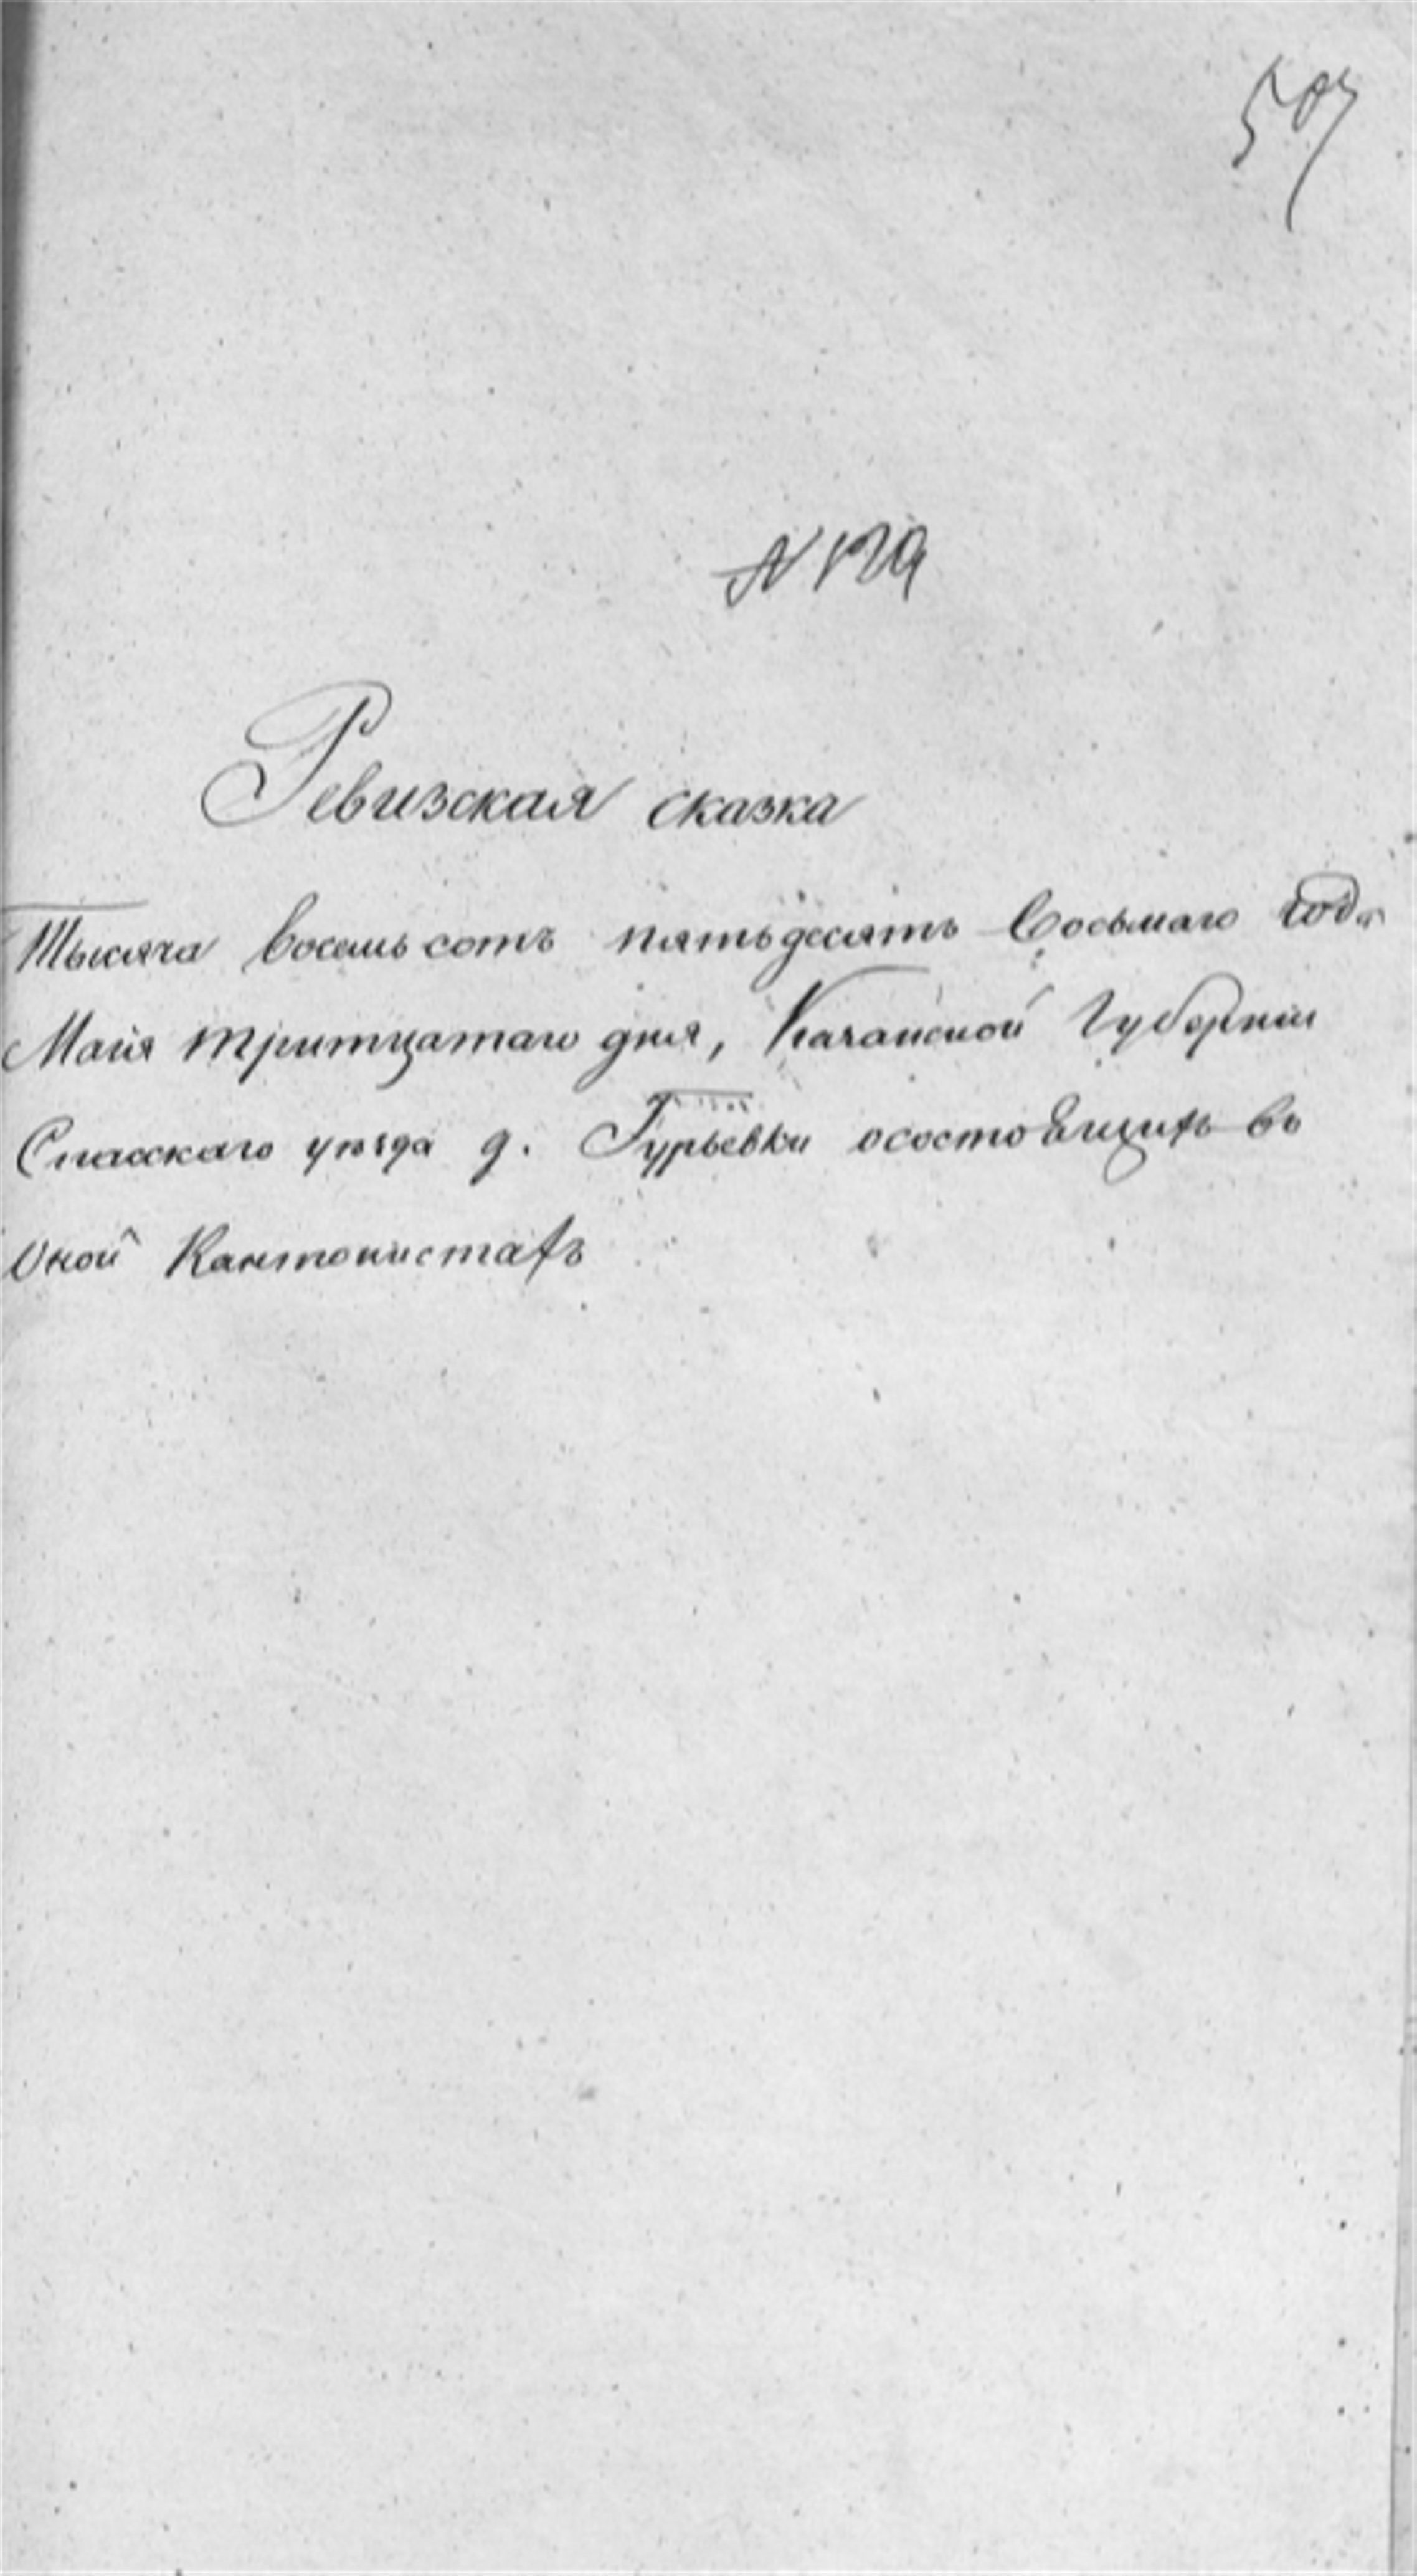 507
N 129
Ревизская сказка
Тысяча восемь сотъ пятьдесятъ восьмаго года
Маія тритцатаго дня, Казанской Губерніи
Спасскаго уѣзда д. Гурьевки осостоящихъ въ
Оной Кантонистахъ